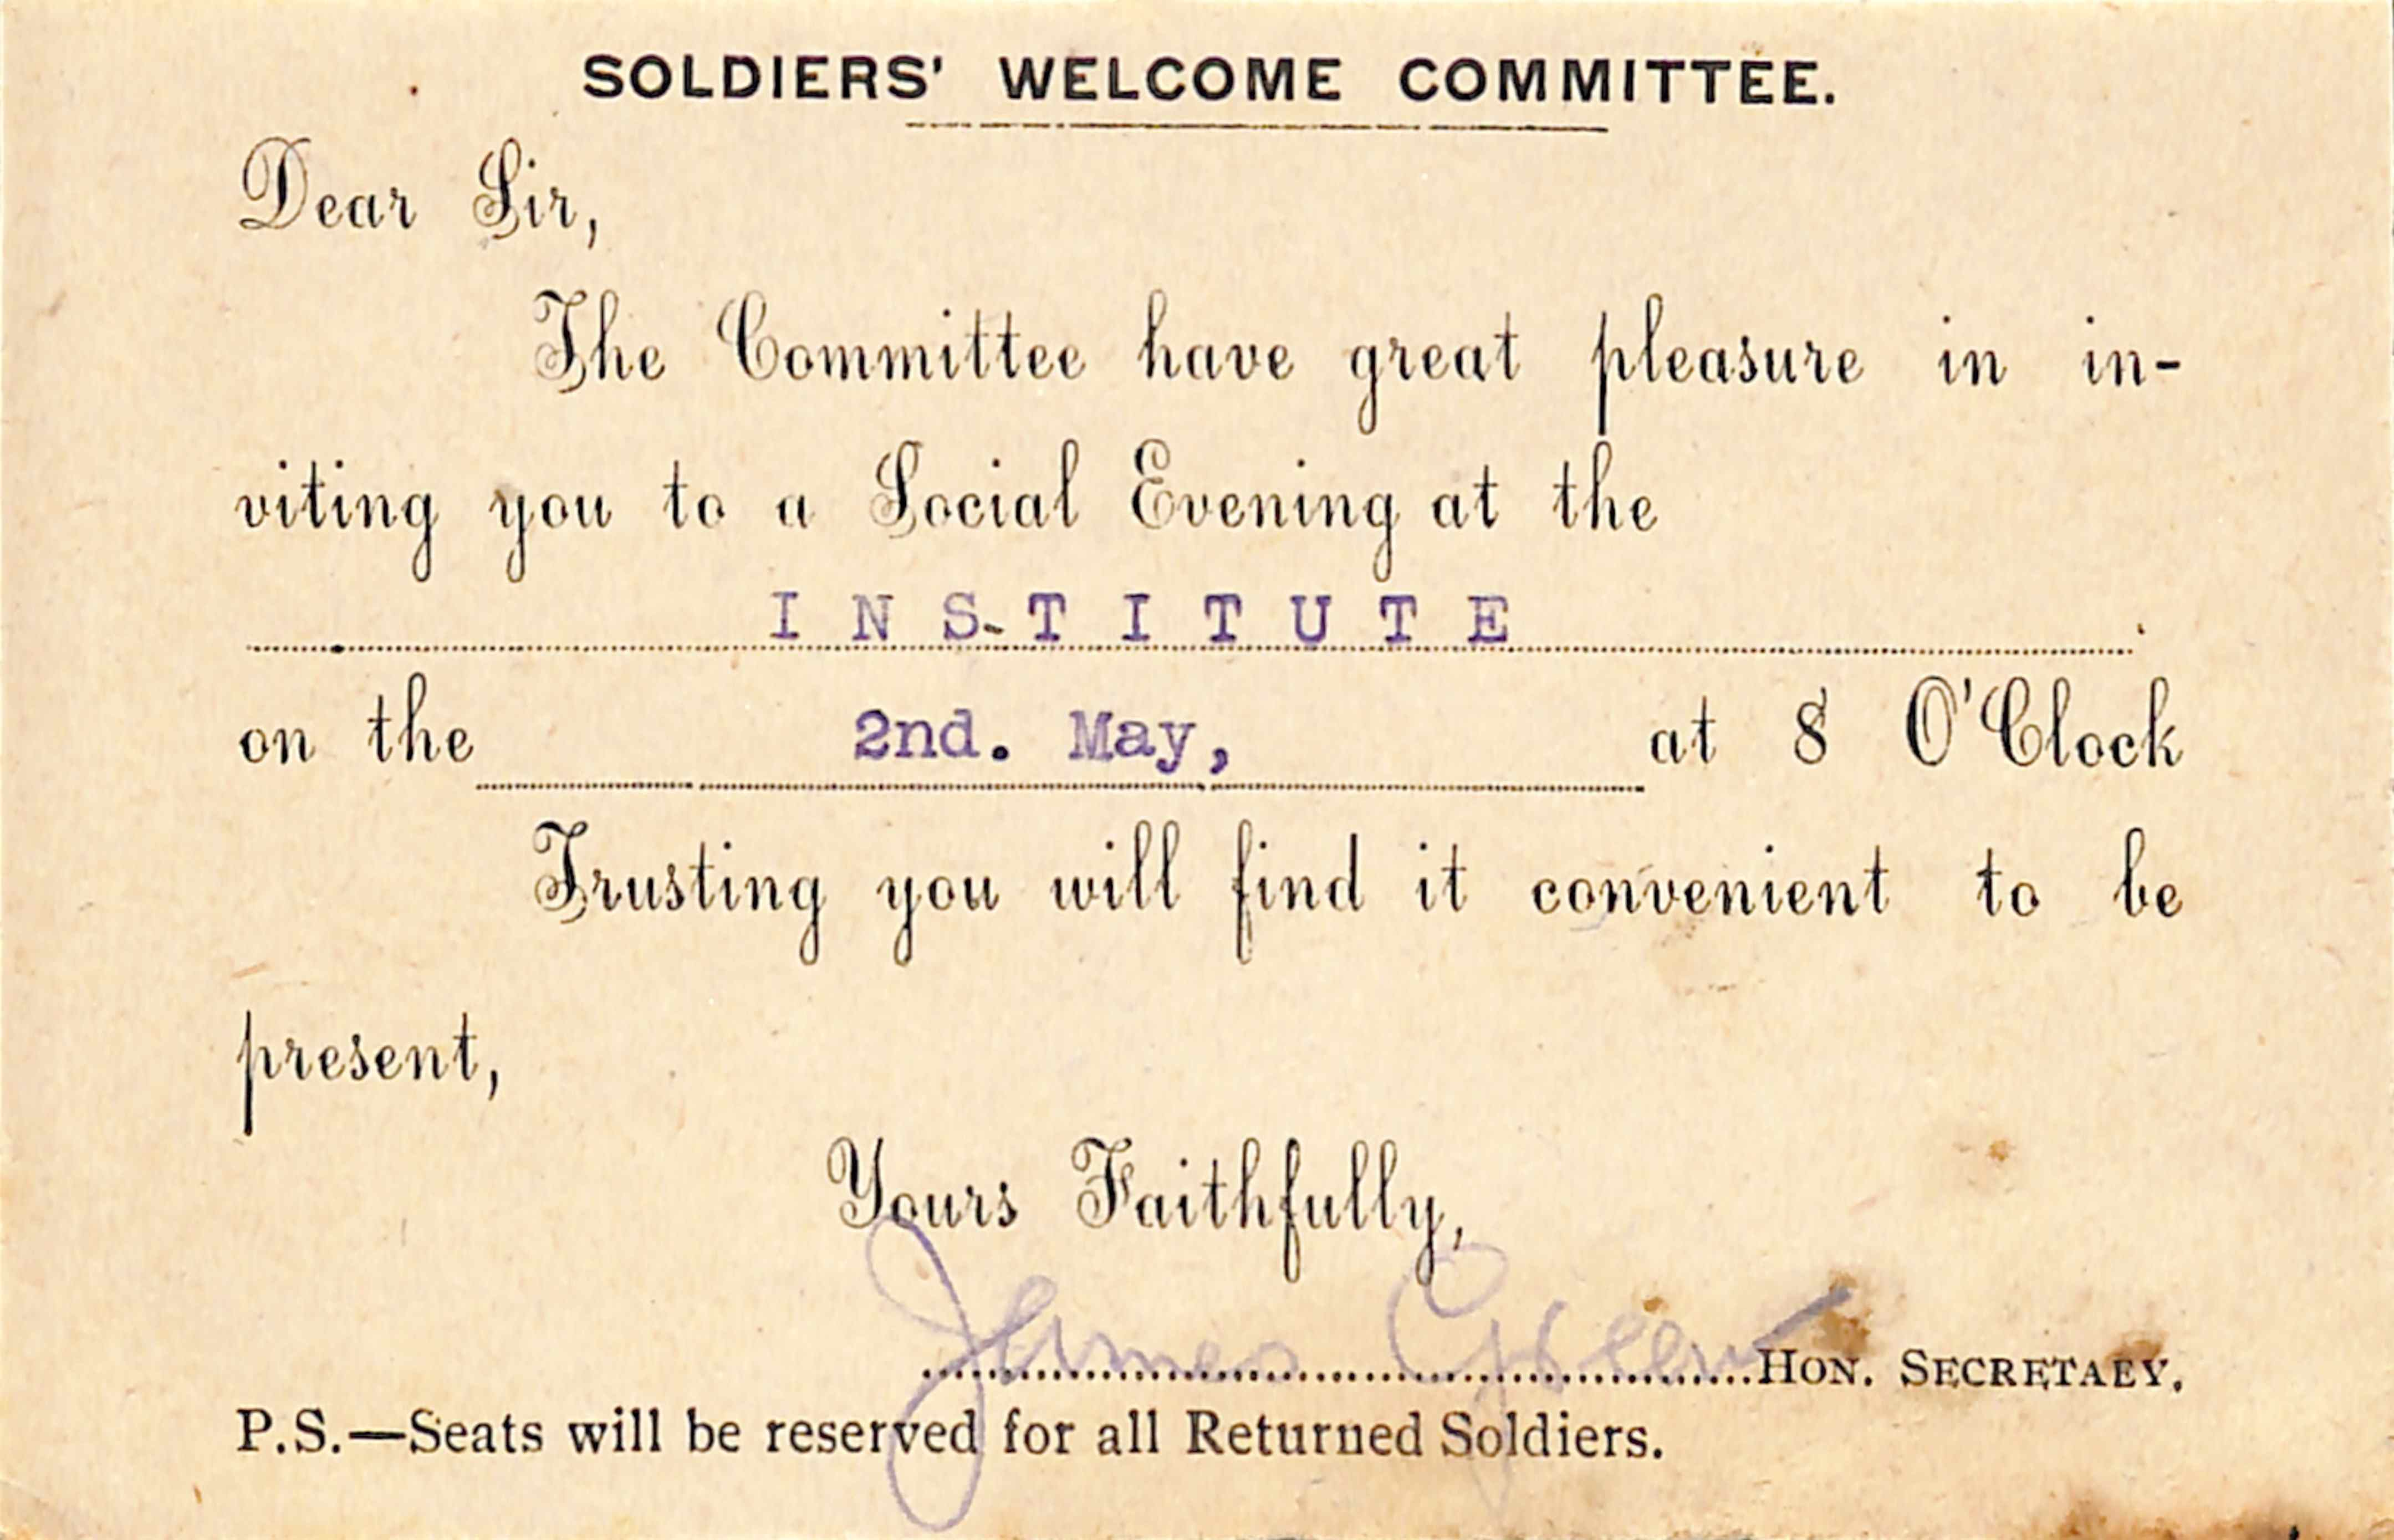 SOLDIERS' WELCOME COMMITTEE.
Dear Sir,
The Committee have great pleasure in in-
viting you to a Social Evening at the
INSTITUTE
on the 2nd. May, at 8 O'Clock
Trusting you will find it convenient to be
present,
Yours Faithfully,
James
HON. SECRETARY.
P.S.—Seats will be reserved for all Returned Soldiers.